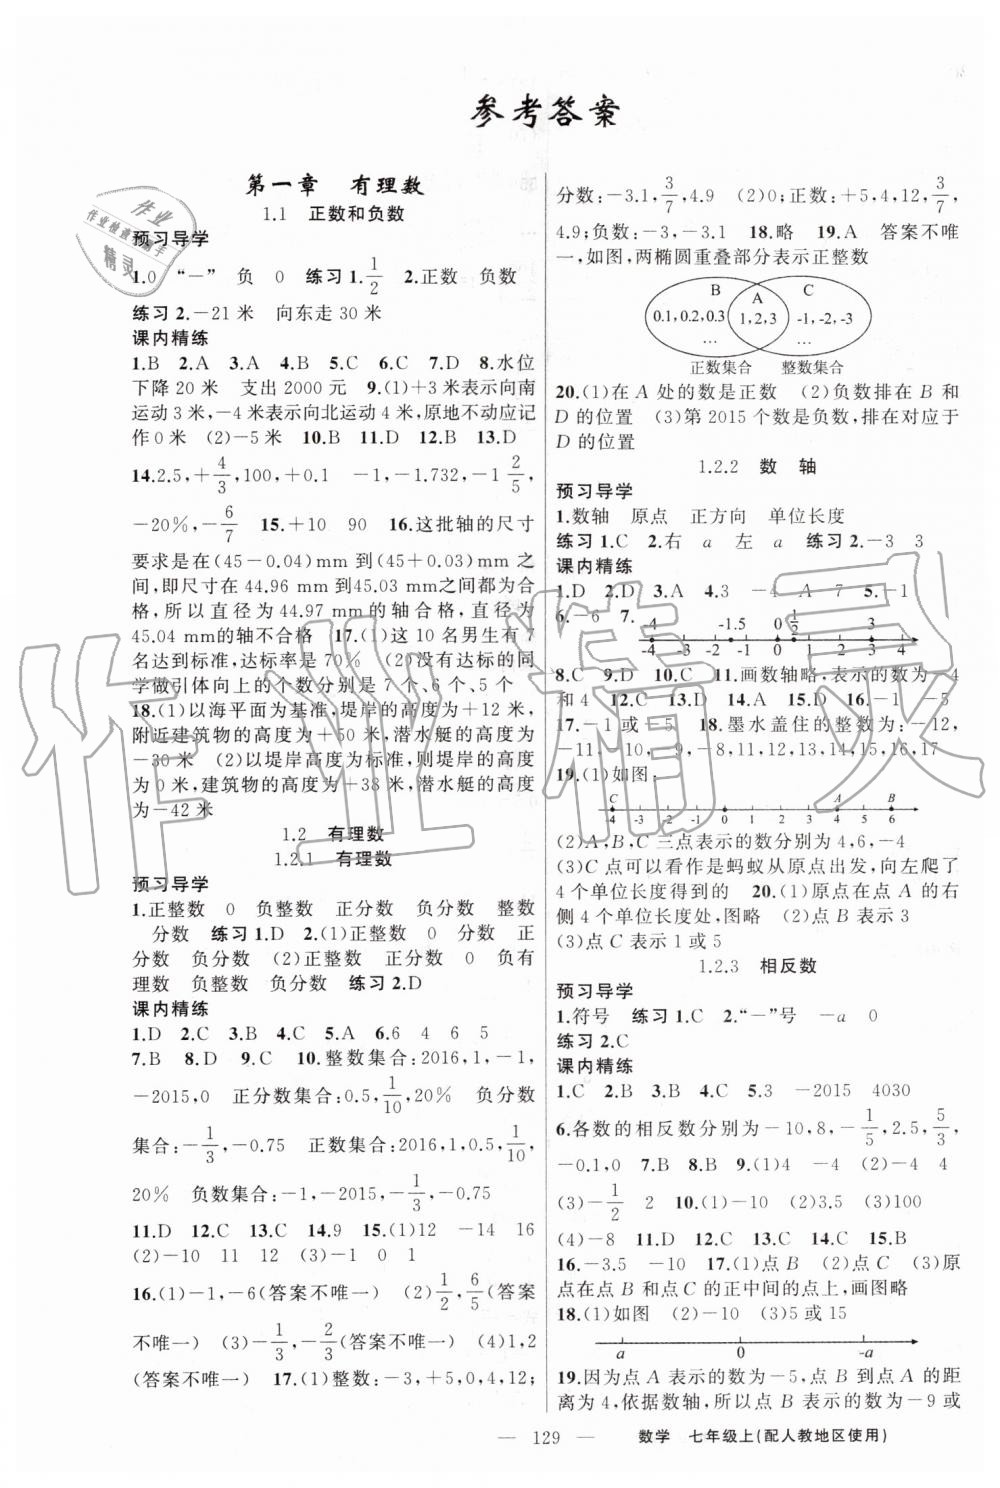 参考答案
第一章 有理数
1.1 正数和负数
预习导学
1.0 “－” 负 0 练习1.1/2 2.正数 负数
练习2.－21米 向东走30米
课内精练
1.B 2.A 3.A 4.B 5.C 6.C 7.D 8.水位
下降20米 支出2000元 9.(1)+3米表示向南
运动3米,－4米表示向北运动4米,原地不动应记
作0米 (2)－5米 10.B 11.D 12.B 13.D
14.2.5,+4/3,100,+0.1 －1,－1.732,－1 2/5,
－20%,－6/7 15.+10 90 16.这批轴的尺寸
要求是在(45－0.04)mm到(45+0.03)mm之
间,即尺寸在44.96 mm到45.03 mm之间都为合
格,所以直径为44.97 mm的轴合格,直径为
45.04 mm的轴不合格 17.(1)这10名男生有7
名达到标准,达标率是70% (2)没有达标的同
学做引体向上的个数分别是7个、6个、5个
18.(1)以海平面为基准,堤岸的高度为+12米,
附近建筑物的高度为+50米,潜水艇的高度为
－30米 (2)以堤岸高度为标准,则堤岸的高度
为0米,建筑物的高度为+38米,潜水艇的高度
为－42米
1.2 有理数
1.2.1 有理数
预习导学
1.正整数 0 负整数 正分数 负分数 整数
分数 练习1.D 2.(1)正整数 0 分数 正
分数 负分数 (2)正整数 正分数 0 负有
理数 负整数 负分数 练习2.D
课内精练
1.D 2.C 3.B 4.C 5.A 6.6 4 6 5
7.B 8.D 9.C 10.整数集合:2016,1,－1,
－2015,0 正分数集合:0.5,1/10,20% 负分数
集合:－1/3,－0.75 正数集合:2016,1,0.5,1/10,
20% 负数集合:－1,－2015,－1/3,－0.75
11.D 12.C 13.C 14.9 15.(1)12 －14 16
(2)－10 11 12 (3)－1 0 1
16.(1)－1,－6(答案不唯一) (2)1/2,6/5(答案
不唯一) (3)－1/3,－2/3(答案不唯一) (4)1,2
(答案不唯一) 17.(1)整数:－3,+5,0,4,12;
分数:－3.1,3/7,4.9 (2)0;正数:+5,4,12,3/7,
4.9;负数:－3,－3.1 18.略 19.A 答案不唯
一,如图,两椭圆重叠部分表示正整数
B A C
0.1,0.2,0.3 1,2,3 -1,-2,-3
… … …
正数集合 整数集合
20.(1)在A处的数是正数 (2)负数排在B和
D的位置 (3)第2015个数是负数,排在对应于
D的位置
1.2.2 数 轴
预习导学
1.数轴 原点 正方向 单位长度
练习1.C 2.右 a 左 a 练习2.－3 3
课内精练
1.D 2.D 3.A 4.3 －4 A 7 5.－1
6.－6 7.
-4 -1.5 0 1/2 3
-4 -3 -2 -1 0 1 2 3 4
8.C 9.D 10.C 11.画数轴略,表示的数为－4
和4 12.C 13.D 14.A 15.D 16.－1 －5
17.－1或－5 18.墨水盖住的整数为:－12,
－11,－10,－9,－8,11,12,13,14,15,16,17
19.(1)如图:
C A B
-4 -3 -2 -1 0 1 2 3 4 5 6
(2)A,B,C三点表示的数分别为4,6,－4
(3)C点可以看作是蚂蚁从原点出发,向左爬了
4个单位长度得到的 20.(1)原点在点A的右
侧4个单位长度处,图略 (2)点B表示3
(3)点C表示1或5
1.2.3 相反数
预习导学
1.符号 练习1.C 2.“－”号 －a 0
练习2.C
课内精练
1.C 2.B 3.B 4.C 5.3 －2015 4030
6.各数的相反数分别为－10,8,－1/5,2.5,5/3,
－0.1,0 7.B 8.B 9.(1)4 －4 (2)－4 4
(3)－1/2 2 10.(1)－10 (2)3.5 (3)100
(4)－8 11.D 12.C 13.C 14.C 15.B
16.－3.5 －10 17.(1)点B (2)点C (3)原
点在点B和点C的正中间的点上,画图略
18.(1)如图 (2)－10 (3)5或15
a 0 -a
19.因为点A表示的数为－5,点B到点A的距
离为4,依据数轴,所以点B表示的数为－9或
— 129 — 数学 七年级上(配人教地区使用)
作业
作业检查小助手
精灵
作业精灵